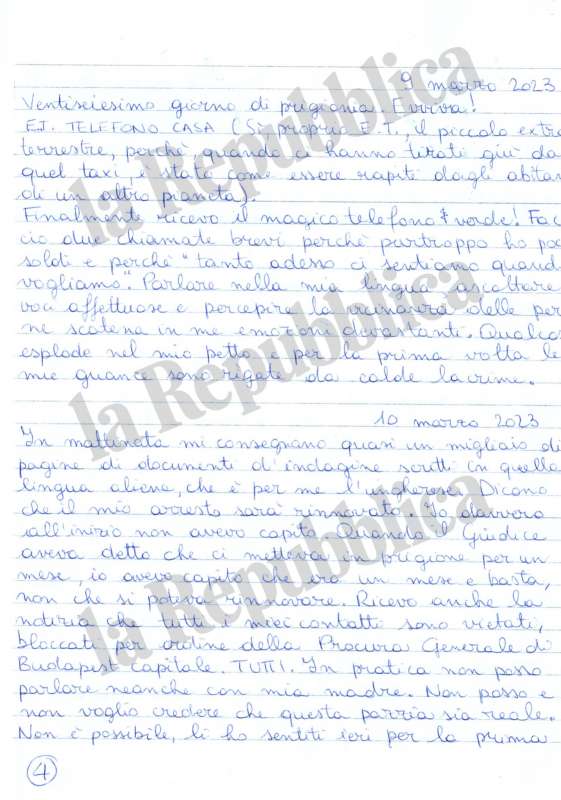 9 marzo 2023
Ventiseiesimo giorno di prigionia. Evviva!
E.T. TELEFONO CASA (Sì proprio E.T., il piccolo extra
terrestre, perché quando ci hanno tirati giù da
quel taxi, è stato come essere rapiti dagli abitan
di un altro pianeta).
Finalmente ricevo il magico telefono verde! Fac
cio due chiamate brevi perché purtroppo ho poc
soldi e perché "tanto adesso ci sentiamo quand
vogliamo". Parlare nella mia lingua, ascoltare
voci affettuose e percepire la vicinanza delle per
ne scatena in me emozioni devastanti. Qualcos
esplode nel mio petto e per la prima volta le
mie guance sono rigate da calde lacrime.
10 marzo 2023
In mattinata mi consegnano quasi un migliaio di
pagine di documenti d'indagine scritti in quella
lingua aliena, che è per me l'ungherese. Dicono
che il mio arresto sarà rinnovato. Io davvero
all'inizio non avevo capito. Quando il Giudice
aveva detto che ci metteva in prigione per un
mese, io avevo capito che era un mese e basta,
non che si poteva rinnovare. Ricevo anche la
notizia che tutti i miei contatti sono vietati,
bloccati per ordine della Procura Generale di
Budapest Capitale. TUTTI. In pratica non posso
parlare neanche con mia madre. Non posso e
non voglio credere che questa pazzia sia reale.
Non è possibile, li ho sentiti ieri per la prima
4
la Repubblica
la Repubblica
la Repubblica